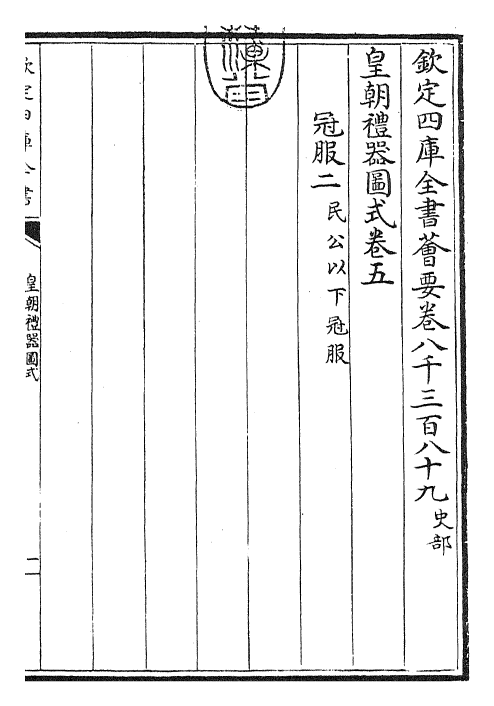 欽定四庫全書薈要卷八千三百八十九 史部
皇朝禮器圖式卷五
冠服二 民公以下冠服
欽定四庫全書
皇朝禮器圖式